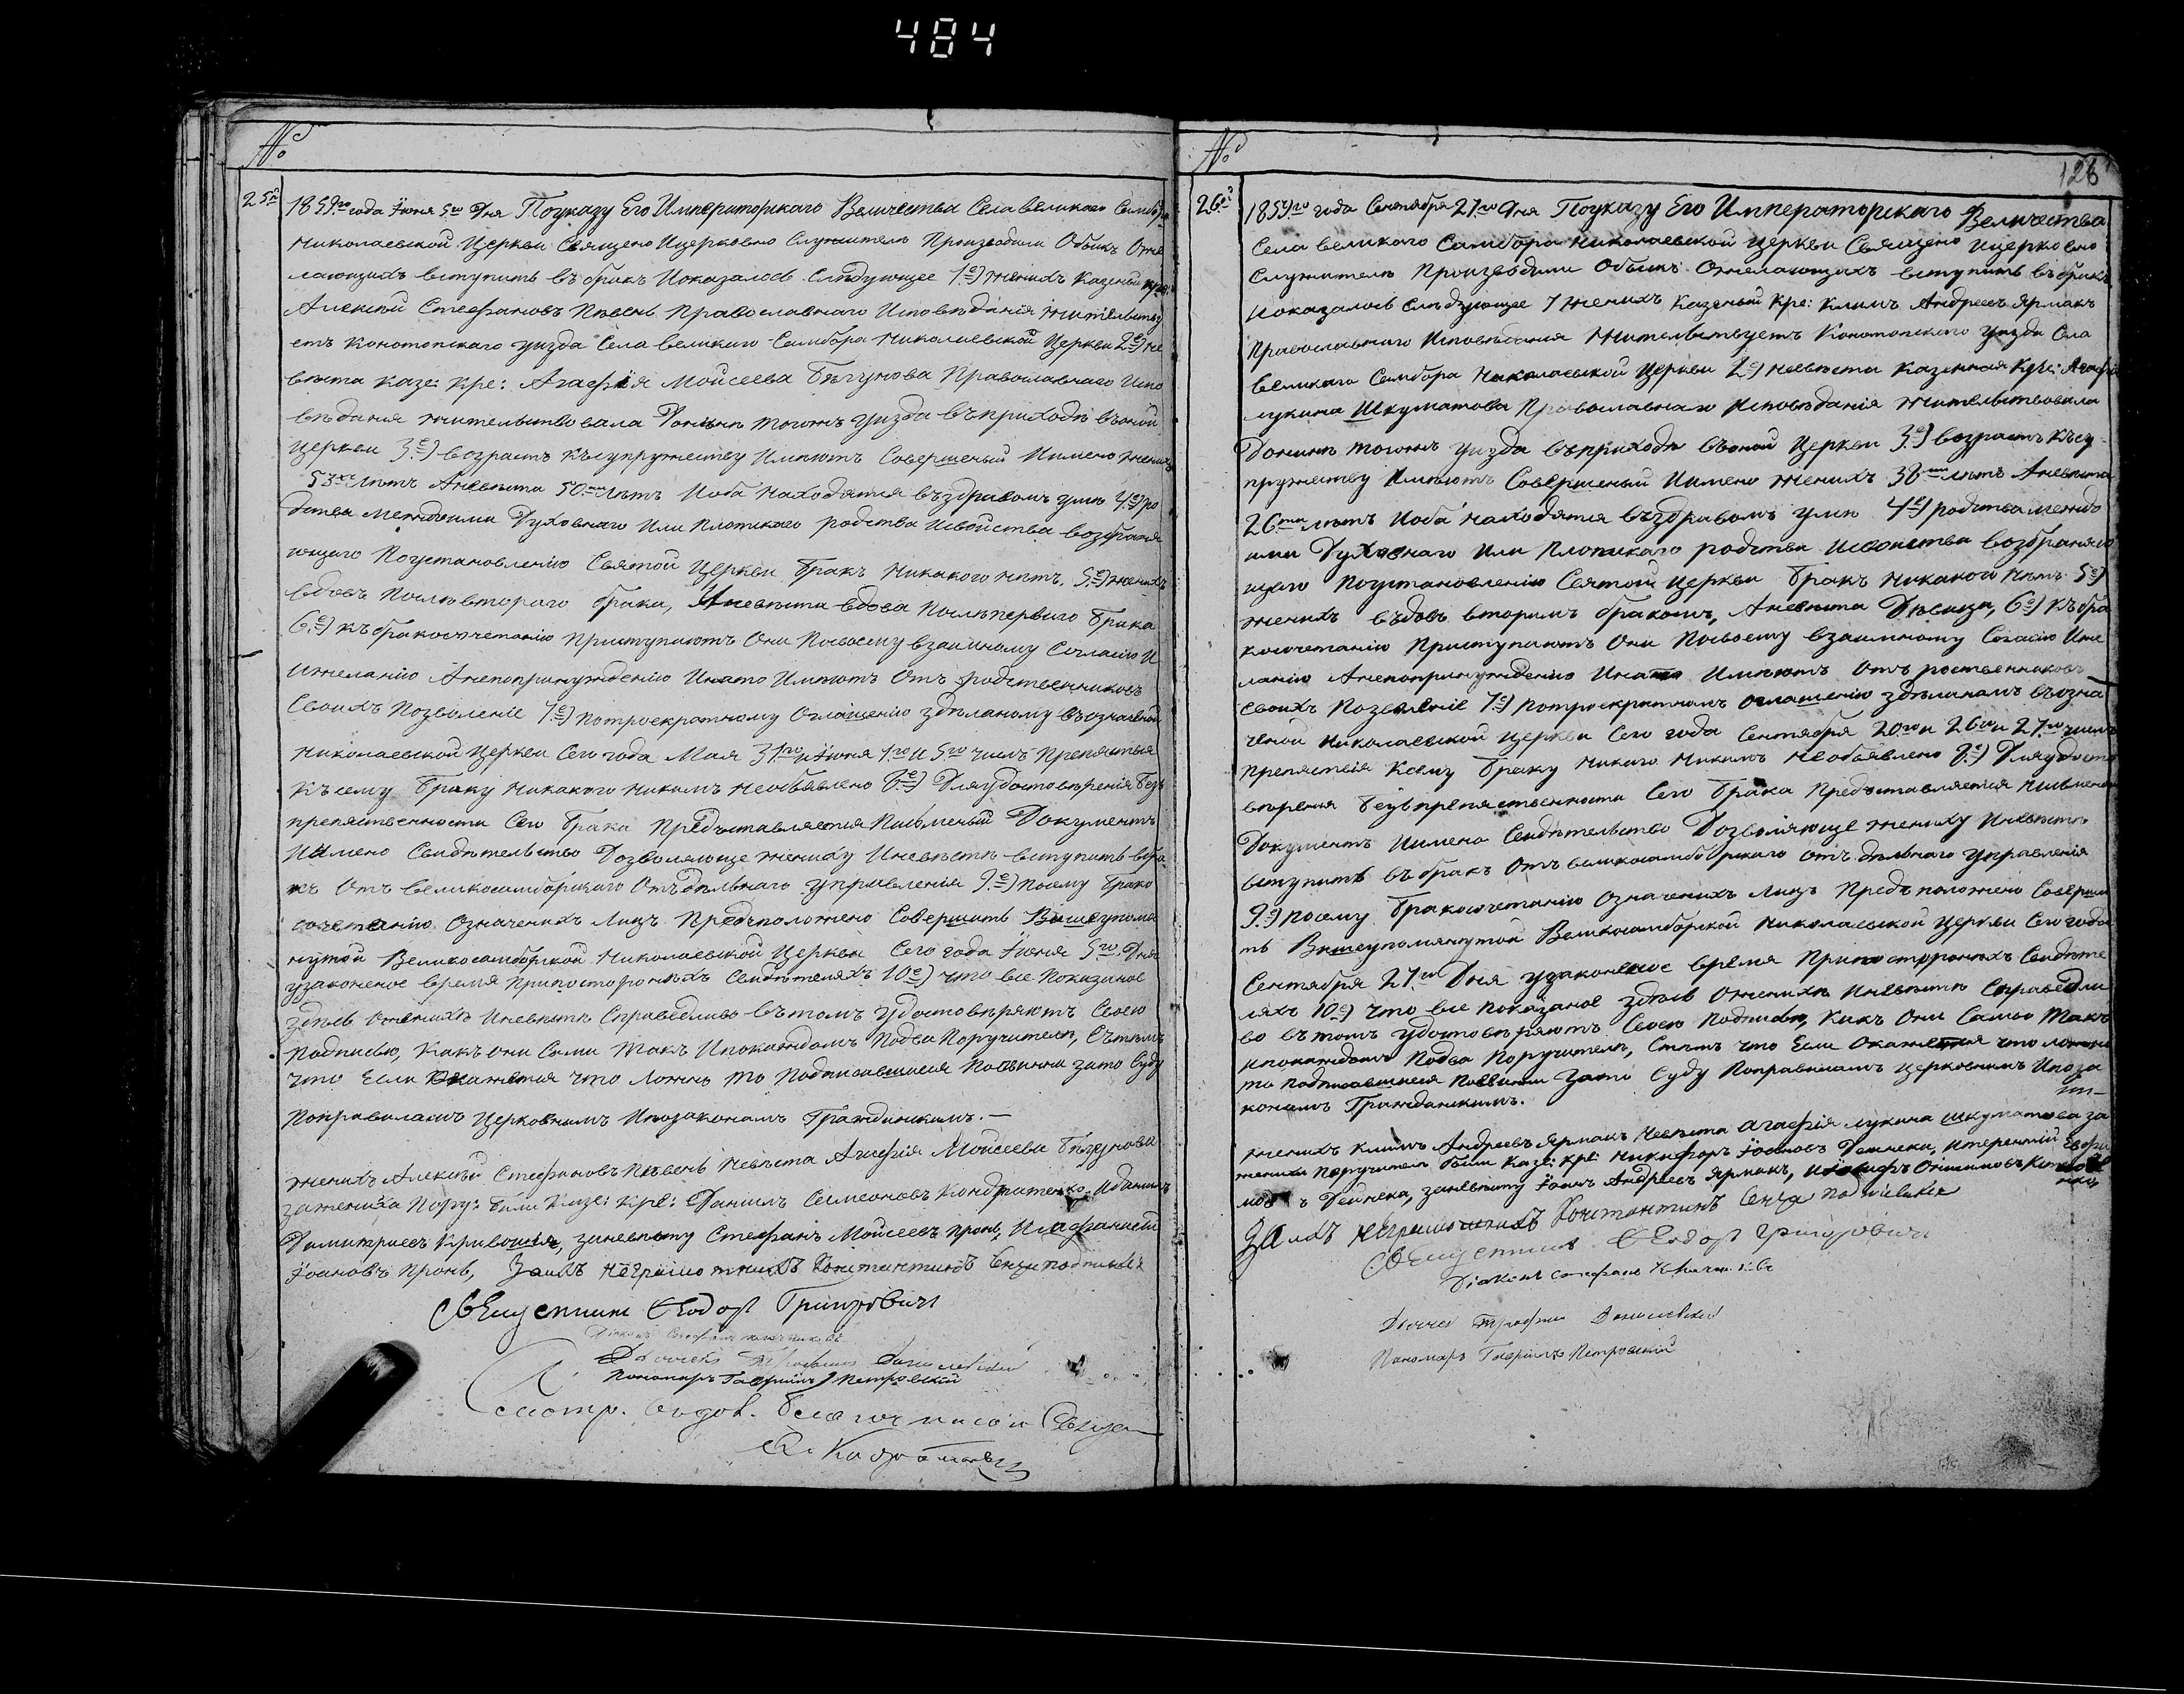 484
№
25й
1859го года Іюня 5го Дня Поуказу Его Императорскаго Величества Села великаго Самбора
Николаевской Церкви Священо Ицерковно Служители Производили Обыскъ Оже
лающихъ вступить въ бракъ Ипоказалось Следующее 1е) женихъ Казеный кре:
Алексий Стефановъ Певень Православнаго Исповѣданія Жительству
етъ Конотопскаго уизда Села великаго Самбора Николаевской Церкви 2е) не
вѣста казе: кре: Агафія Моисеева Бѣгунова Православнаго Испо
вѣданія жительствовала Донынѣ тогожъ Уизда въприходѣ въоной
церкви 3е) возрастъ Къ супружеству Имѣютъ Совершеный Имено жених
53хъ лѣтъ Аневѣста 50ти лѣтъ Иоба находятся въздравомъ умѣ 4е) ро
дства междоими Духовнаго Или плотскаго родства Исвойства возбраня
ющаго Поустановленію Святой Церкви бракъ никакого нѣтъ, 5е) женихъ
вдовъ Послѣ второго брака, Аневѣста вдова Послѣ перваго брака
6е) къ бракосочетанію Приступаютъ Они Посвоему взаимному Согласію И
ижеланію Анепопринужденію Инато Имѣютъ Отъ родственниковъ
Своихъ Позволеніе 7е) Потроекратному Оглашенію здѣланому въозначеной
Николаевской Церкви Сего года Мая 31го и Іюня 1го И 5го числъ Препяствія
Къ сему браку никакого никимъ необъявлено 8е) Дляудостовѣренія безъ
препяственности Сего брака Предъставляется Письменый Документъ
Имено Свидѣтельство Дозволяюще жениху Иневѣстѣ вступить въбра
къ Отъ великосамборскаго Отъдѣльнаго управленія 9е) Посему брако
сочетанію Означенихъ Лицъ Предъположено Совершить Вишеупомя
нутой Великосамборской Николаевской Церкви Сего года Іюня 5го Дня
узаконеное время припосторонихъ Свидѣтеляхъ 10е) что все Показаное
здѣсь Оженихѣ Иневѣстѣ Справедливо въ томъ удостовѣряютъ Своею
Подписью, Какъ они Сами Такъ Ипокаждомъ Подва Поручителя, Съ тѣмъ
что Если Окажется что ложно то Подписавшиеся Повинни зато Суду
Поправиламъ Церковнимъ Ипозаконамъ Гражданскимъ. —
женихъ Алексій Стефановъ Певень невѣста Агафія Моисеева Бѣгунова
зажениха Пору: били Казе: Кре: Даниилъ Симеоновъ Кондратенко, Иданиилъ
Димитріевъ Кривошія, заневѣсту Стефанъ Моисеевъ Пронь, Иафанасій
Іоановъ Пронь, Заихъ неграмотнихъ Константинъ Сенча подписався
Священникъ Ѳеодоръ Григоровичъ
Діаконъ Стефанъ
Дьячекъ Трофимъ Данилевскій
Пономаръ Гавріилъ Петровскій
Смотр. Благочинній
№
126
26й
1859го года Сентября 27го Дня Поуказу Его Императорскаго Величества
Села великаго Самбора Николаевской Церкви Священо Ицерковно
Служители Производили Обыскъ Ожелающихъ вступить въбракъ
Ипоказалось Слѣдующее 1 женихъ Казеный Кре: Климъ Андреевъ Ярмакъ
Православнаго Исповѣданія Жительствуетъ Конотопскаго уизда Села
великаго Самбора Николаевской Церкви 2е) невѣста Казенная Кре: Агафія
лукина Шкуматова Православнаго Исповѣданія жительствовала
Донинѣ тогожъ уизда въприходѣ въоной Церкви 3е) возрастъ Къ су
пружеству Имѣютъ Совершеный Имено женихъ 38ми лѣтъ Аневѣста
26ти лѣтъ Иоба находятся въздравомъ умѣ 4е) родства между
ими Духовнаго Или плотскаго родства Исвоиства возбраняю
щаго Поустановленію Святой Церкви бракъ никакого нѣтъ 5е)
женихъ въдовъ вторимъ бракомъ, Аневѣста Дѣвица, 6е) Къ бра
косочетанію Приступаютъ Они Посвоему взаимному Согласію Иже
ланію Анепопринужденію Инато Имѣютъ Отъ роственниковъ
Своихъ Позволеніе 7е) Потроекратномъ оглашенію здѣланомъ въозна
ченой Николаевской Церкви Сего года Сентября 20го и 26го и 27го числъ
препятствія Ксему браку никаго никимъ необъявлено 8е) Дляудосто
вѣренія безъпрепяственности Сего брака Предъставляется письменой
Документъ Имено Свидѣтельство Дозволяюще жениху Иневѣстѣ
вступить въ бракъ Отъ великосамборскаго отъдѣльнаго управленія
9е) Посему бракосочетанію Означенихъ Лицъ Предъположено Соверши
ть Вишеупомянутой Великосамборской Николаевской Церкви Сего года
Сентября 27го Дня узаконеное время Припосторонихъ Свидѣте
ляхъ 10е) что все показаное здѣсь Оженихѣ Иневѣстѣ Справедли
во въ томъ удостовѣряютъ Своею Подписью, Какъ Они Сами Такъ
Ипокаждомъ Подва Поручителя, Стѣмъ что Если Окажется что ложно
то подписавшиеся Повинни Зато Суду Поправиламъ церковнимъ Ипоза
конамъ Гражданскимъ.
женихъ климъ Андреевъ Ярмакъ невѣста агафія лукина шкуматова за
жениха Поручители били Казе: Кре: Никифоръ Іоановъ Дейнека, Итерентій Евфи
мовъ Дейнека, заневѣсту Іоанъ Андреевъ Ярмакъ, Иосифъ
За ихъ неграмотнихъ Константинъ Сенча подписався
Священникъ Ѳеодоръ Григоровичъ
Діаконъ Стефанъ
Дьячек Трофим Данилевский
Пономаръ Гавріилъ Петровскій